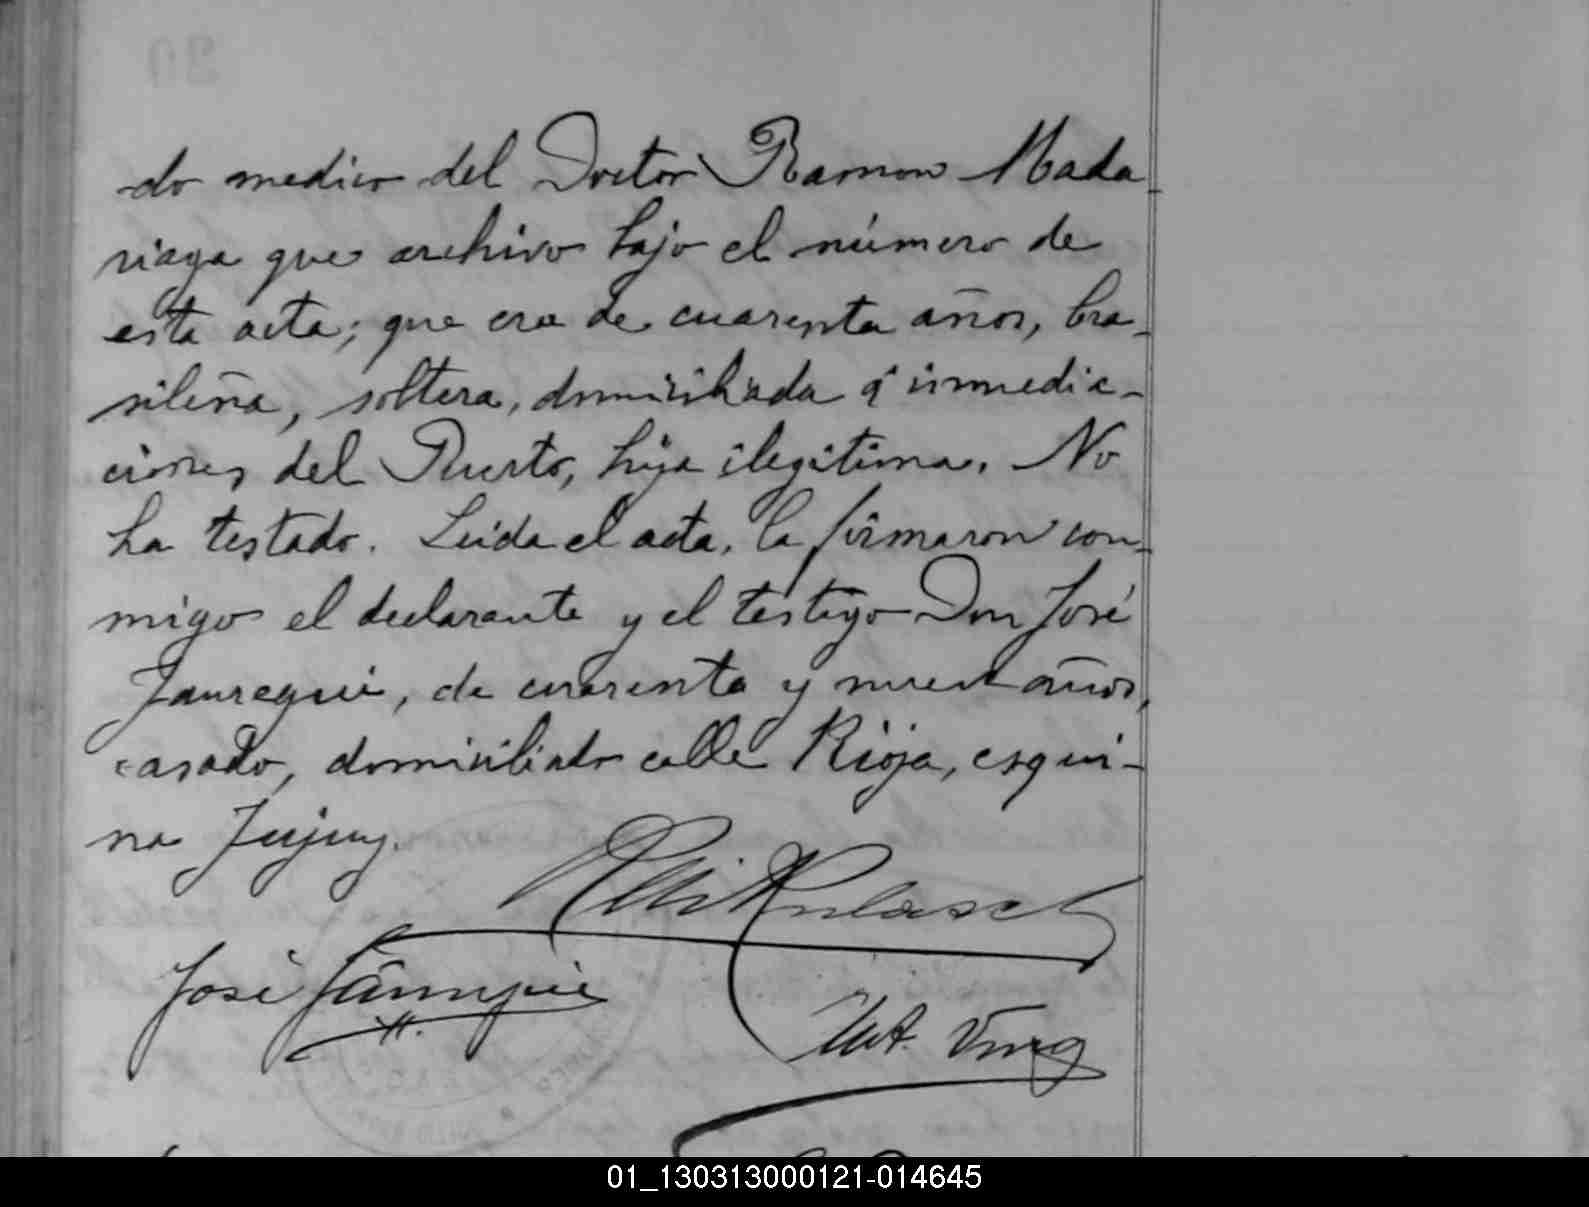 do medico del Doctor Ramon Mada-
riaga que archivo bajo el número de
esta acta; que era de cuarenta años, bra-
sileña, soltera, domiciliada á inmedia-
ciones del Puerto, hija ilegitima. No
ha testado. Leida el acta, la firmaron con-
migo el declarante y el testigo Don José
Jauregui, de cuarenta y nueve años,
casado, domiciliado calle Rioja, esqui-
na Jujuy.
José Jáuregui
01_130313000121-014645